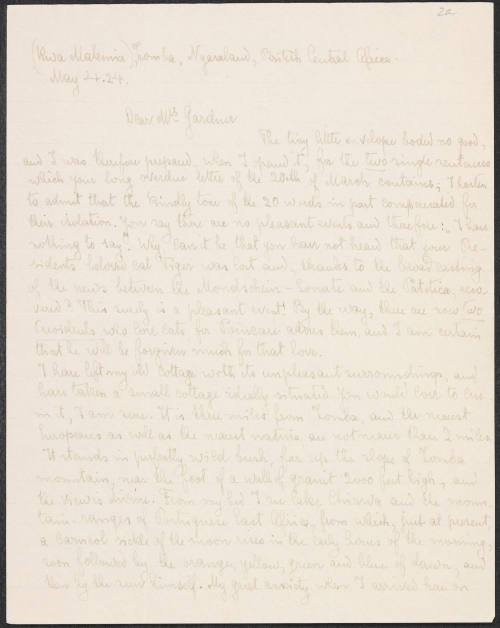 2a
(Kwa Makeima), Zomba, Nyasaland, British Central Africa.
May 24.24.
Dear Mrs Gardner
The tiny little envelope boded no good,
and I was therefore prepared, when I opened it, for the two single sentences
which your long overdue letter of the 20th of March contains; I hasten
to admit that the kindly tone of the 20 words in part compensated for
their isolation. You say there are no pleasant events and therefore: "I have
nothing to say". Why can it be that you have not heard that your Pre-
sident's beloved cat Tiger was lost and, thanks to the broadcasting
of the news between the Mondschein-Sonate and the Patetica, reco
vered? This surely is a pleasant event! By the way, there are now two
Presidents who love cats, for Poincaré adores them, and I am certain
that he will be forgiven much for that love.
I have left my old cottage with its unpleasant surroundings, and
have taken a small cottage ideally situated. You would love to live
in it, I am sure. It is three miles from Zomba, and the nearest
Europeans as well as the nearest natives are not nearer than 2 miles.
It stands in perfectly wild bush, far up the slope of Zomba
mountain, near the foot of a wall of granit 2000 feet high, and
the view is divine. From my bed I see lake Chirwa and the moun-
tain-ranges of Portuguese East Africa, from which, just at present
a carneol sickle of the moon rises in the early hours of the morning,
soon followed by the orange, yellow, green and blue of dawn, and
then by the sun himself. My great anxiety when I arrived here